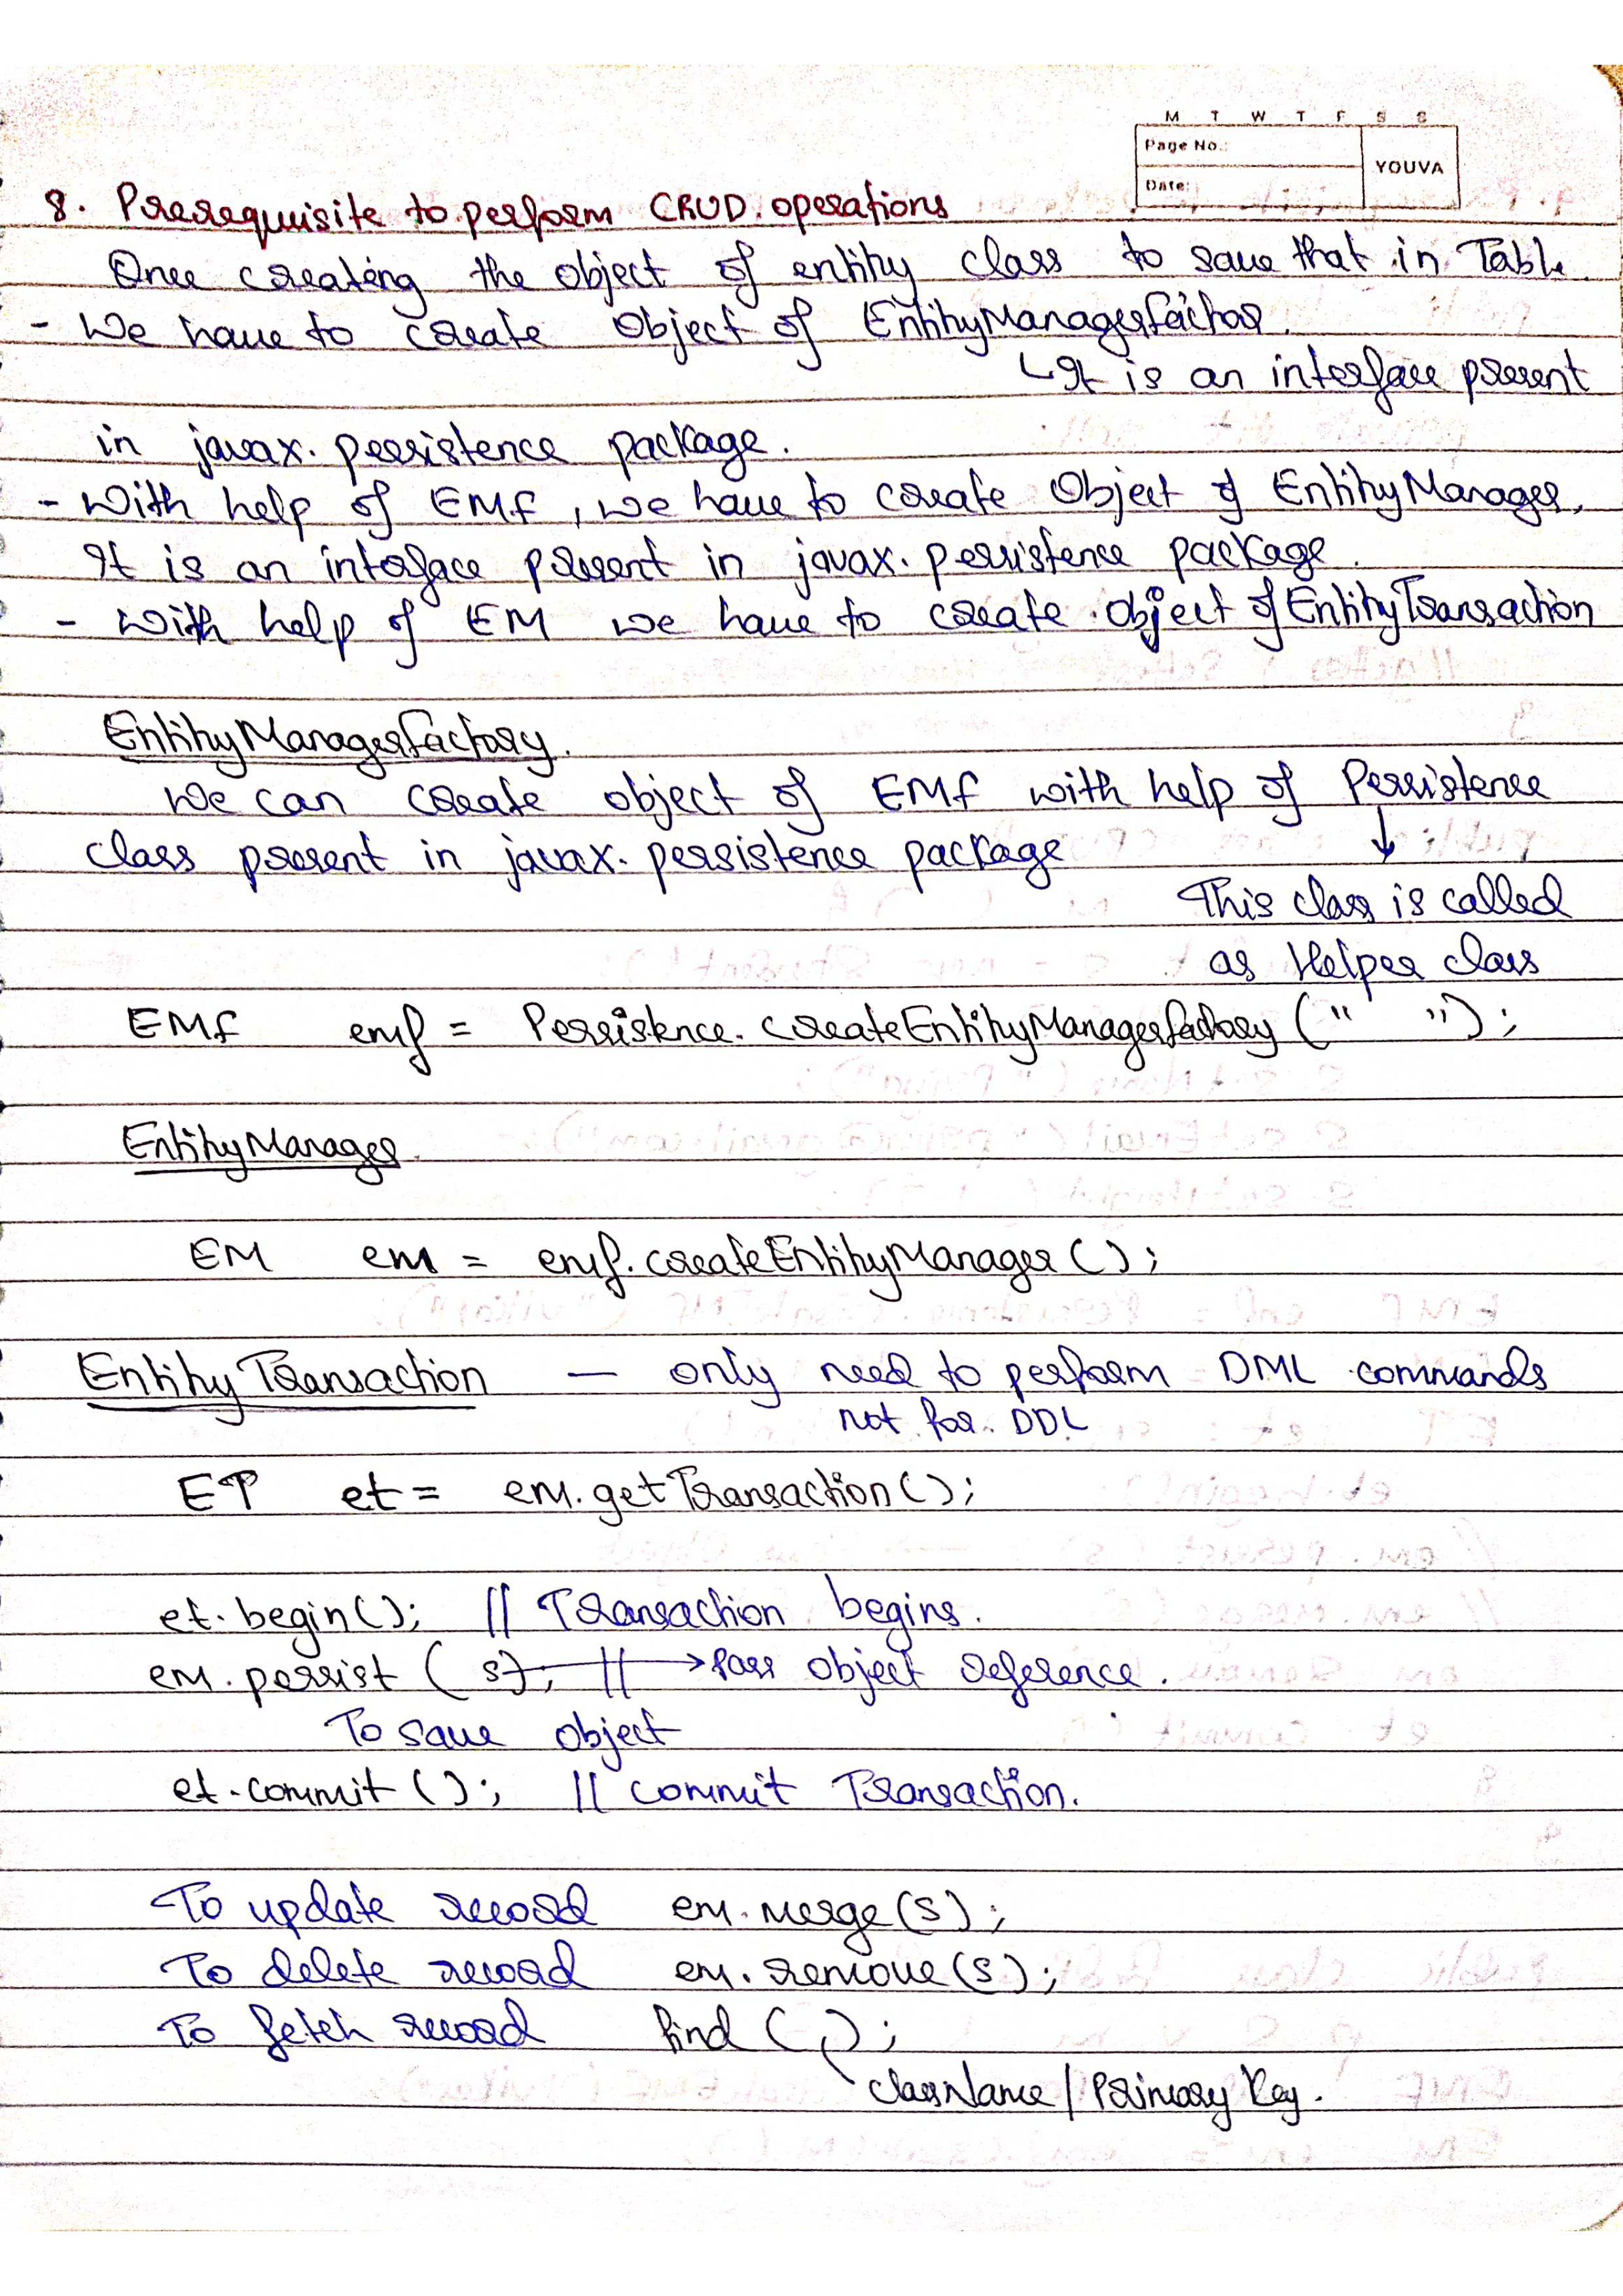 M T W T F S S
Page No.:
YOUVA
Date:
8. Prerequisite to perform CRUD operations
Once creating the object of entity class to save that in Table.
- We have to create object of EntityManagerFactor.
↳ It is an interface present
in javax.persistence package.
- With help of EMF, we have to create Object of EntityManager,
It is an interface present in javax.persistence package.
- With help of EM we have to create object of EntityTransaction
EntityManagerFactory.
We can create object of EMF with help of Persistence
↓
class present in javax.persistence package
This class is called
as Helper class
EMF emf = Persistence.createEntityManagerFactory (" ");
EntityManager.
EM em = emf.createEntityManager ();
EntityTransaction — only need to perform DML commands
not for DDL
ET et = em.getTransaction();
et.begin(); // Transaction begins.
em.persist (s); // → Pass object reference.
To save object
et.commit (); // commit Transaction.
To update record em.merge(s);
To delete record em.remove(s);
To fetch record find ( , );
className / Primary Key.